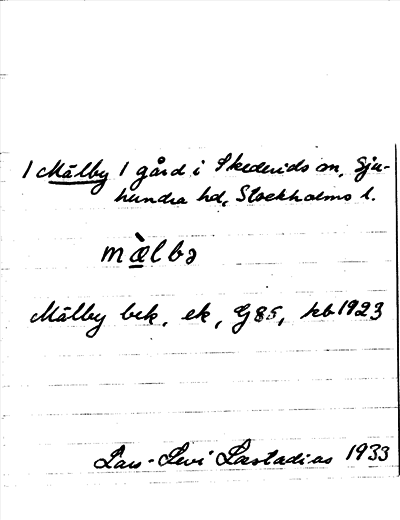 1 Mälby 1 gård i Skederids sn, Sju-
hundra hd, Stockholms l.
mæ̀lbə
Mälby bek, ek, G85, kb 1923
Lars-Levi Læstadius 1933